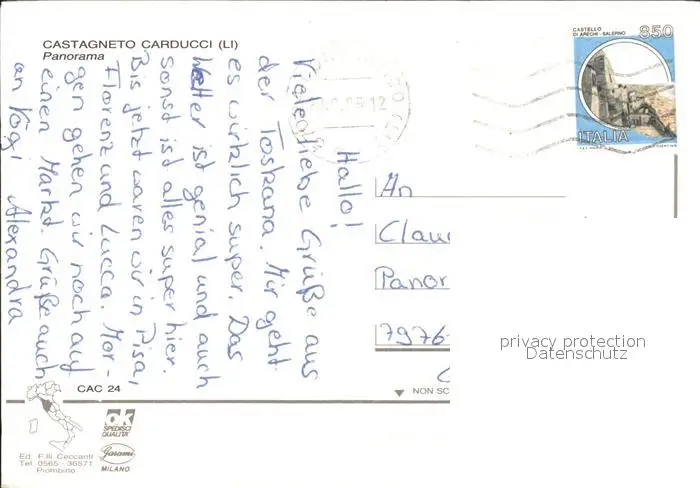 CASTAGNETO CARDUCCI (LI)
Panorama
CASTELLO
DI ARECHI - SALERNO
850
ITALIA
Hallo!
Viele liebe Grüße aus
der Toskana. Mir geht
es wirklich super. Das
Wetter ist genial und auch
sonst ist alles super hier.
Bis jetzt waren wir in Pisa,
Florenz und Lucca. Mor-
gen gehen wir noch auf
einen Markt. Grüße auch
an Vögi
Alexandra
An
Clau
Panor
7976
privacy protection
Datenschutz
CAC 24
NON SC
OK
SPEDISCI
QUALITA'
Garami
MILANO
Ed. F.lli Ceccanti
Tel. 0565-36571
Piombino